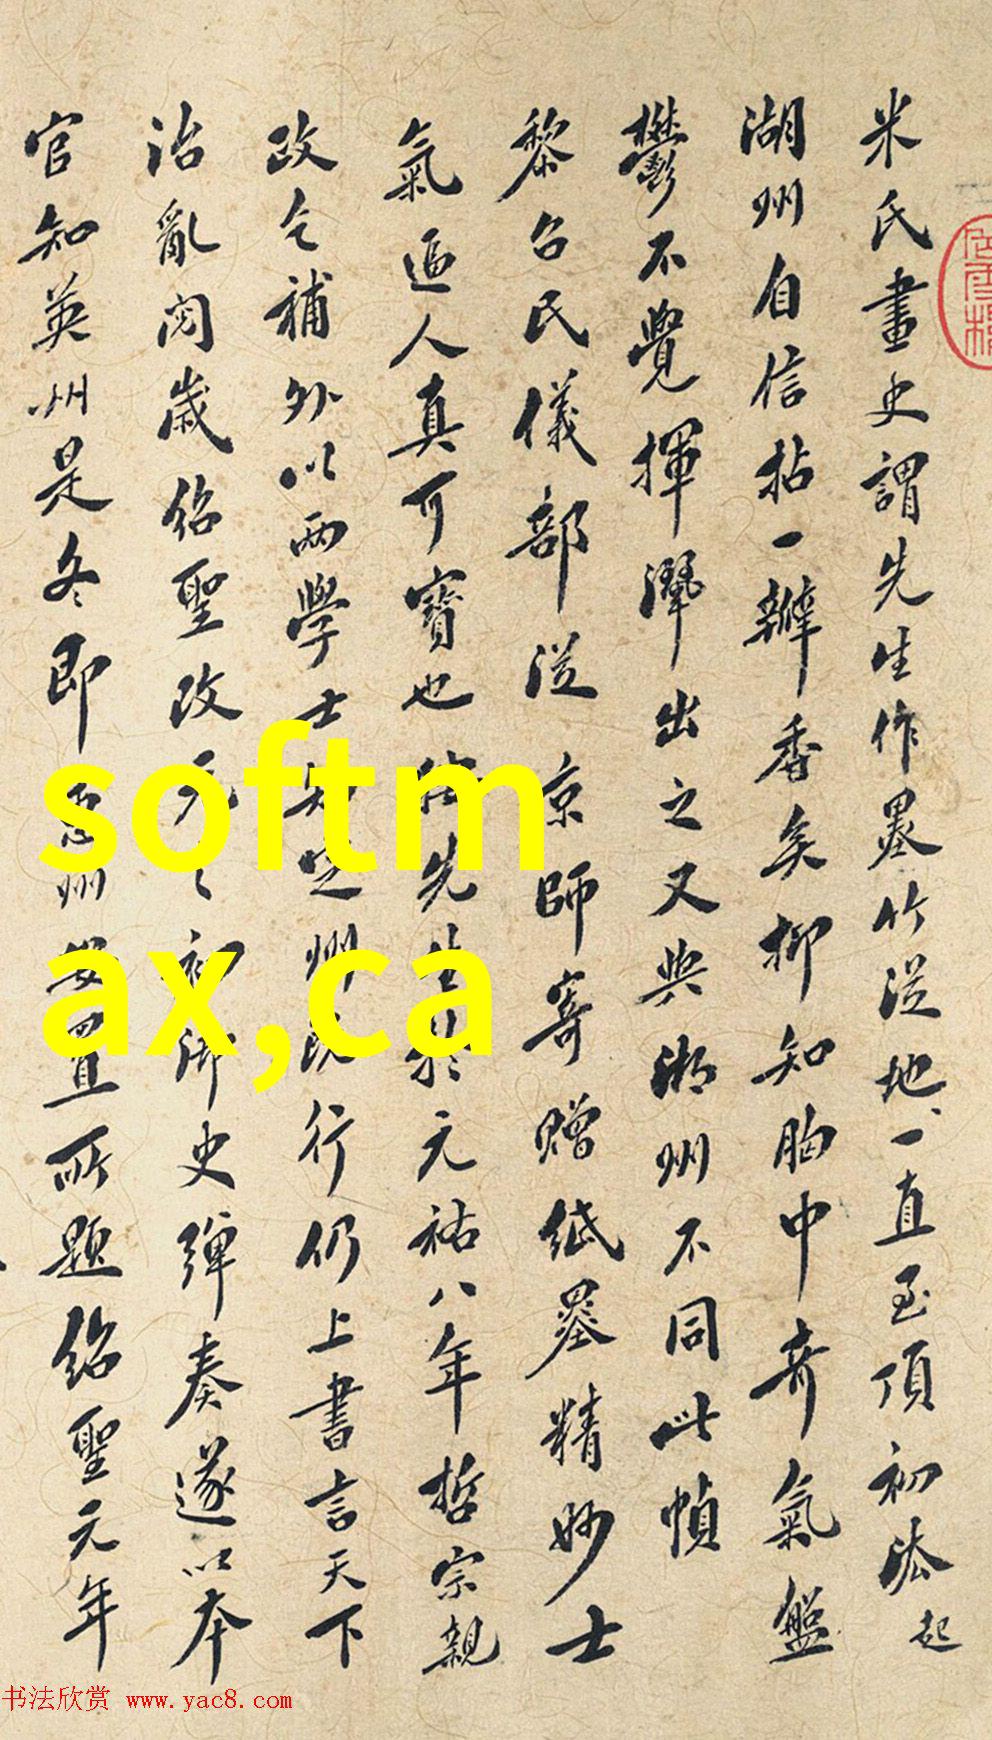 米氏畫史謂先生作墨竹從地一直至頂初法起
湖州自信拈一瓣香矣抑知胸中奇氣盤
鬱不覺揮灑出之又與湖州不同此幀
黎召民儀部從京師寄贈紙墨精妙士
氣逼人真可寶也先生於元祐八年哲宗親
政乞補外以兩學士知定州既行仍上書言天下
治亂閱歲紹聖改元之初御史彈奏遂以本
官知英州是冬即惠州安置所題紹聖元年
softm
ax,ca
书法欣赏 www.yac8.com